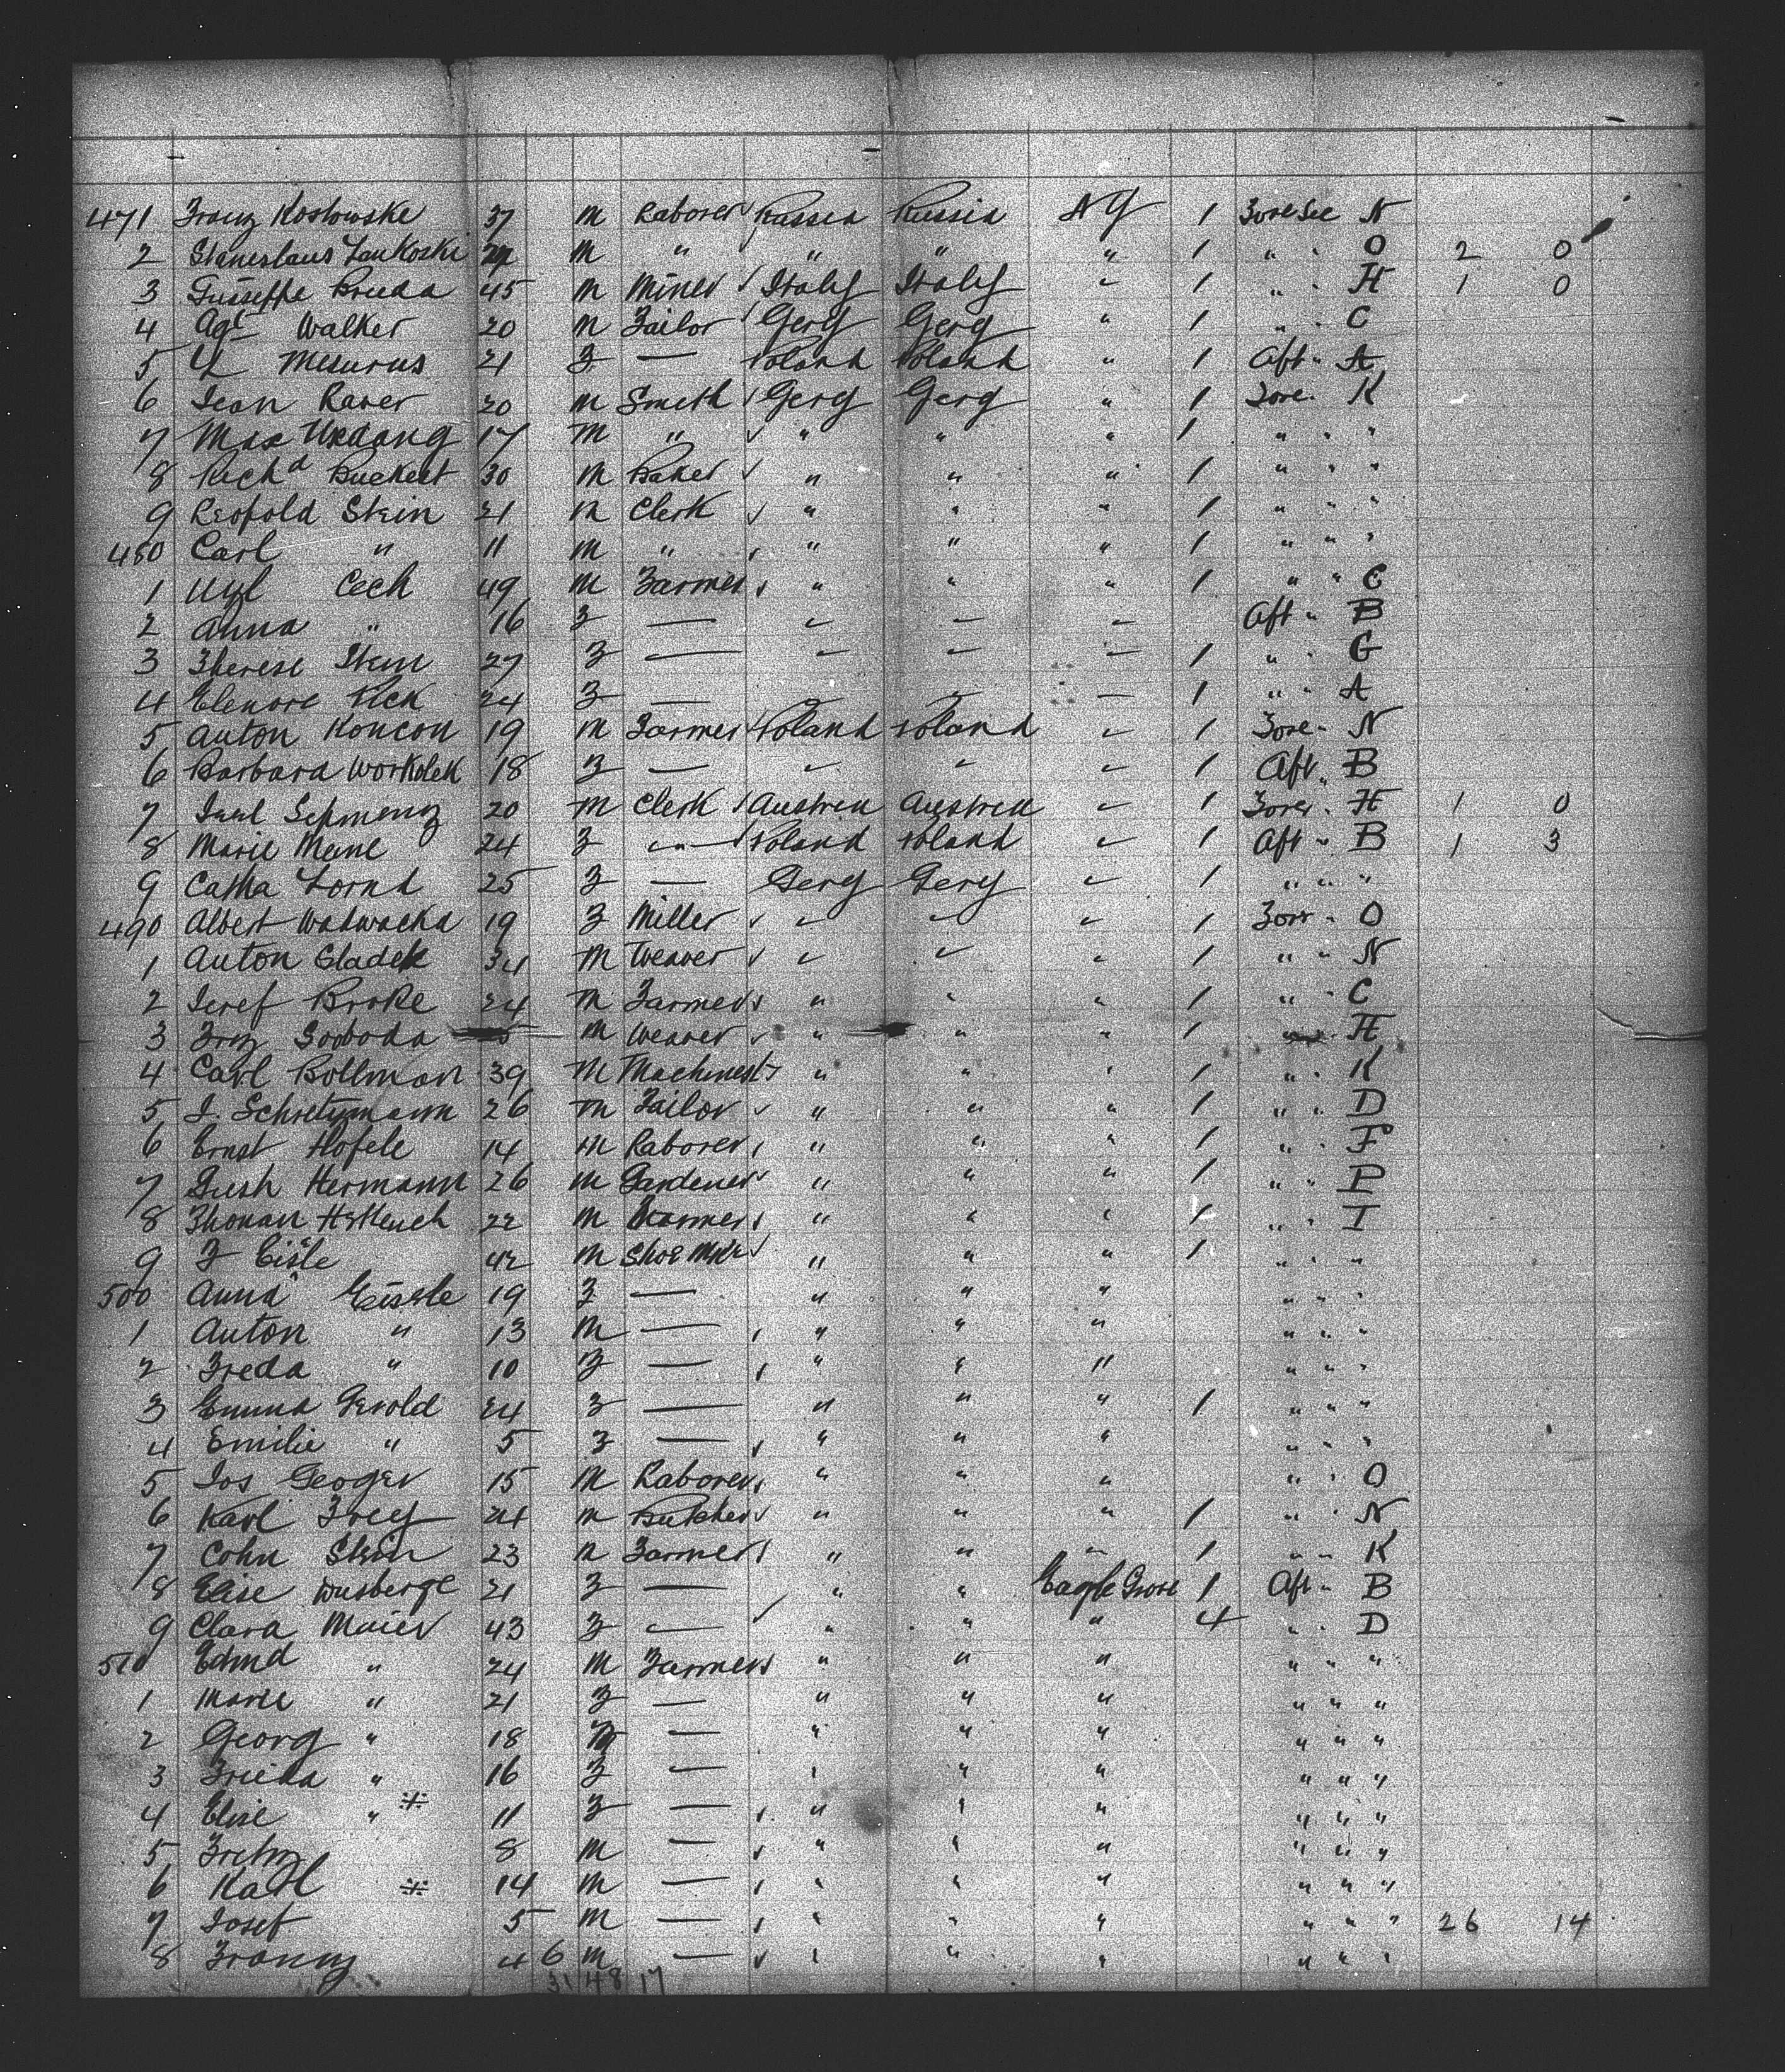 471 Franz Koslowske 37 M Laborer Russia Russia N Y 1 Fore See N
2 Stanislaus Lankoski M " " " " 1 " " O 2 0
3 Guiseppe Breda 45 M Miner Italy Italy " 1 " " H 1 0
4 Agt Walker 20 M Tailor Gery Gery " 1 " " C
5 Mesurus 21 F — Poland Poland " 1 Aft " A
6 Jean Raver 20 M Smith Gery Gery " 1 Fore " K
7 Max 17 M " " " " 1 " " "
8 Richd Buckert 30 M Baker " " " 1 " " "
9 Leopold Stein 21 M Clerk " " " 1 " " "
480 Carl " 11 M " " " " 1 " " "
1 Cech 49 M Farmer " " " 1 " " C
2 Anna " 16 F — " " " Aft " B
3 Therese Stein 27 F — " " " 1 " " G
4 Elenore Pick 24 F — " " " 1 " " A
5 Anton Koncon 19 M Farmer Poland Poland " 1 Fore " N
6 Barbara Workolek 18 F — " " " 1 Aft " B
7 20 M Clerk Austria Austria " 1 Fore " H 1 0
8 Marie Mune 24 F " Poland Poland " 1 Aft " B 1 3
9 Catha 25 F — Gery Gery " 1 " " "
490 Albert Wadwacka 19 F Miller " " " 1 Fore " O
1 Anton Sladek 34 M Weaver " " " 1 " " N
2 Josef 24 M Farmer " " " 1 " " C
3 Frz Soboda M Weaver " " " 1 " " H
4 Carl Bollman 39 M Machinest " " " 1 " " K
5 J. 26 M Tailor " " " 1 " " D
6 Ernst Hofele 14 M Laborer " " " 1 " " F
7 Gush Hermann 26 M Gardener " " " 1 " " P
8 22 M Farmer " " " 1 " " I
9 F Eisle 42 M Shoe Mkr " " " 1 " " "
500 Anna Eissle 19 F — " " " " " "
1 Anton " 13 M — " " " " " "
2 Freda " 10 F — " " " " " "
3 Emma Gerold 24 F — " " " 1 " " "
4 Emilie " 5 F — " " " " " "
5 Jos Geoger 15 M Laborer " " " " " O
6 Karl Frey 24 M Butcher " " " 1 " " N
7 Cohn Stein 23 M Farmer " " " 1 " " K
8 Elise Wusberge 21 F — " " Eagle Grove 1 Aft " B
9 Clara Maier 43 F — " " " 4 " " D
510 Edmd " 24 M Farmer " " " " " "
1 Marie " 21 F — " " " " " "
2 Georg " 18 M — " " " " " "
3 Frieda " 16 F — " " " " " "
4 Elise " 11 F — " " " " " "
5 Fritz 8 M — " " " " " "
6 Karl 14 M — " " " " " "
7 Josef 5 M — " " " " " " 26 14
8 Franz 4 6 M — " " " " " "
31 48 17